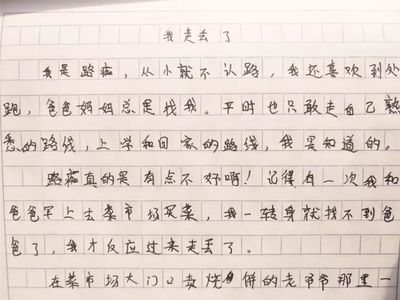 我走丢了
我是路痴，从小就不认路，我还喜欢到处
跑，爸爸妈妈总是找我。平时也只敢走自己熟
悉的路线，上学和回家的路线，我是知道的。
路痴真的是有点不好啊！记得有一次我和
爸爸早上去菜市场买菜，我一转身就找不到爸
爸了，我才反应过来走丢了。
在菜市场大门口卖烧饼的老爷爷那里一